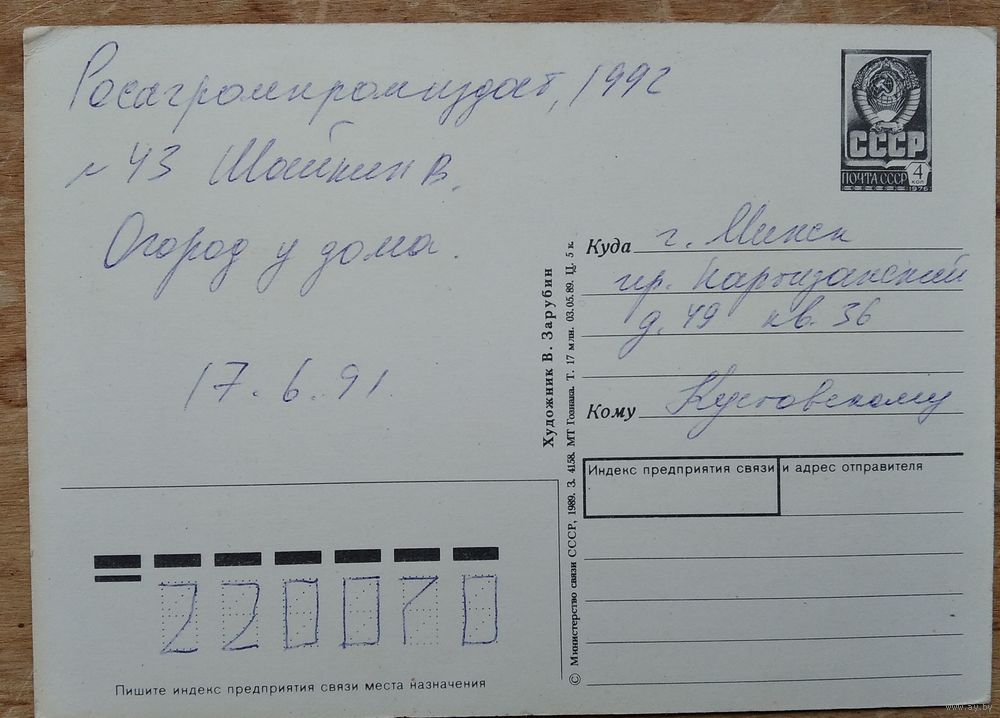 Росагромпромиздат, 1992
№ 43 Шайкин В.
Огород у дома.
17.6.91.
СССР
ПОЧТА СССР
4
КОП
1976
Куда г. Минск
пр. Партизанский
д. 49 кв. 36
Кому Кустовскому
Индекс предприятия связи и адрес отправителя
Художник В. Зарубин
© Министерство связи СССР, 1989. З. 4158. МТ Гознака. Т. 17 млн. 03.05.89. Ц. 5 к.
220070
Пишите индекс предприятия связи места назначения
www.ay.by